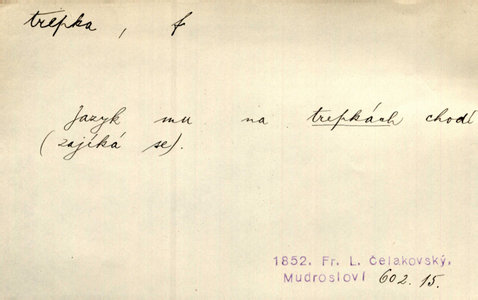 trepka, f
Jazyk mu na trepkách chodí
(zajíká se).
1852. Fr. L. Čelakovský,
Mudrosloví 602. 15.